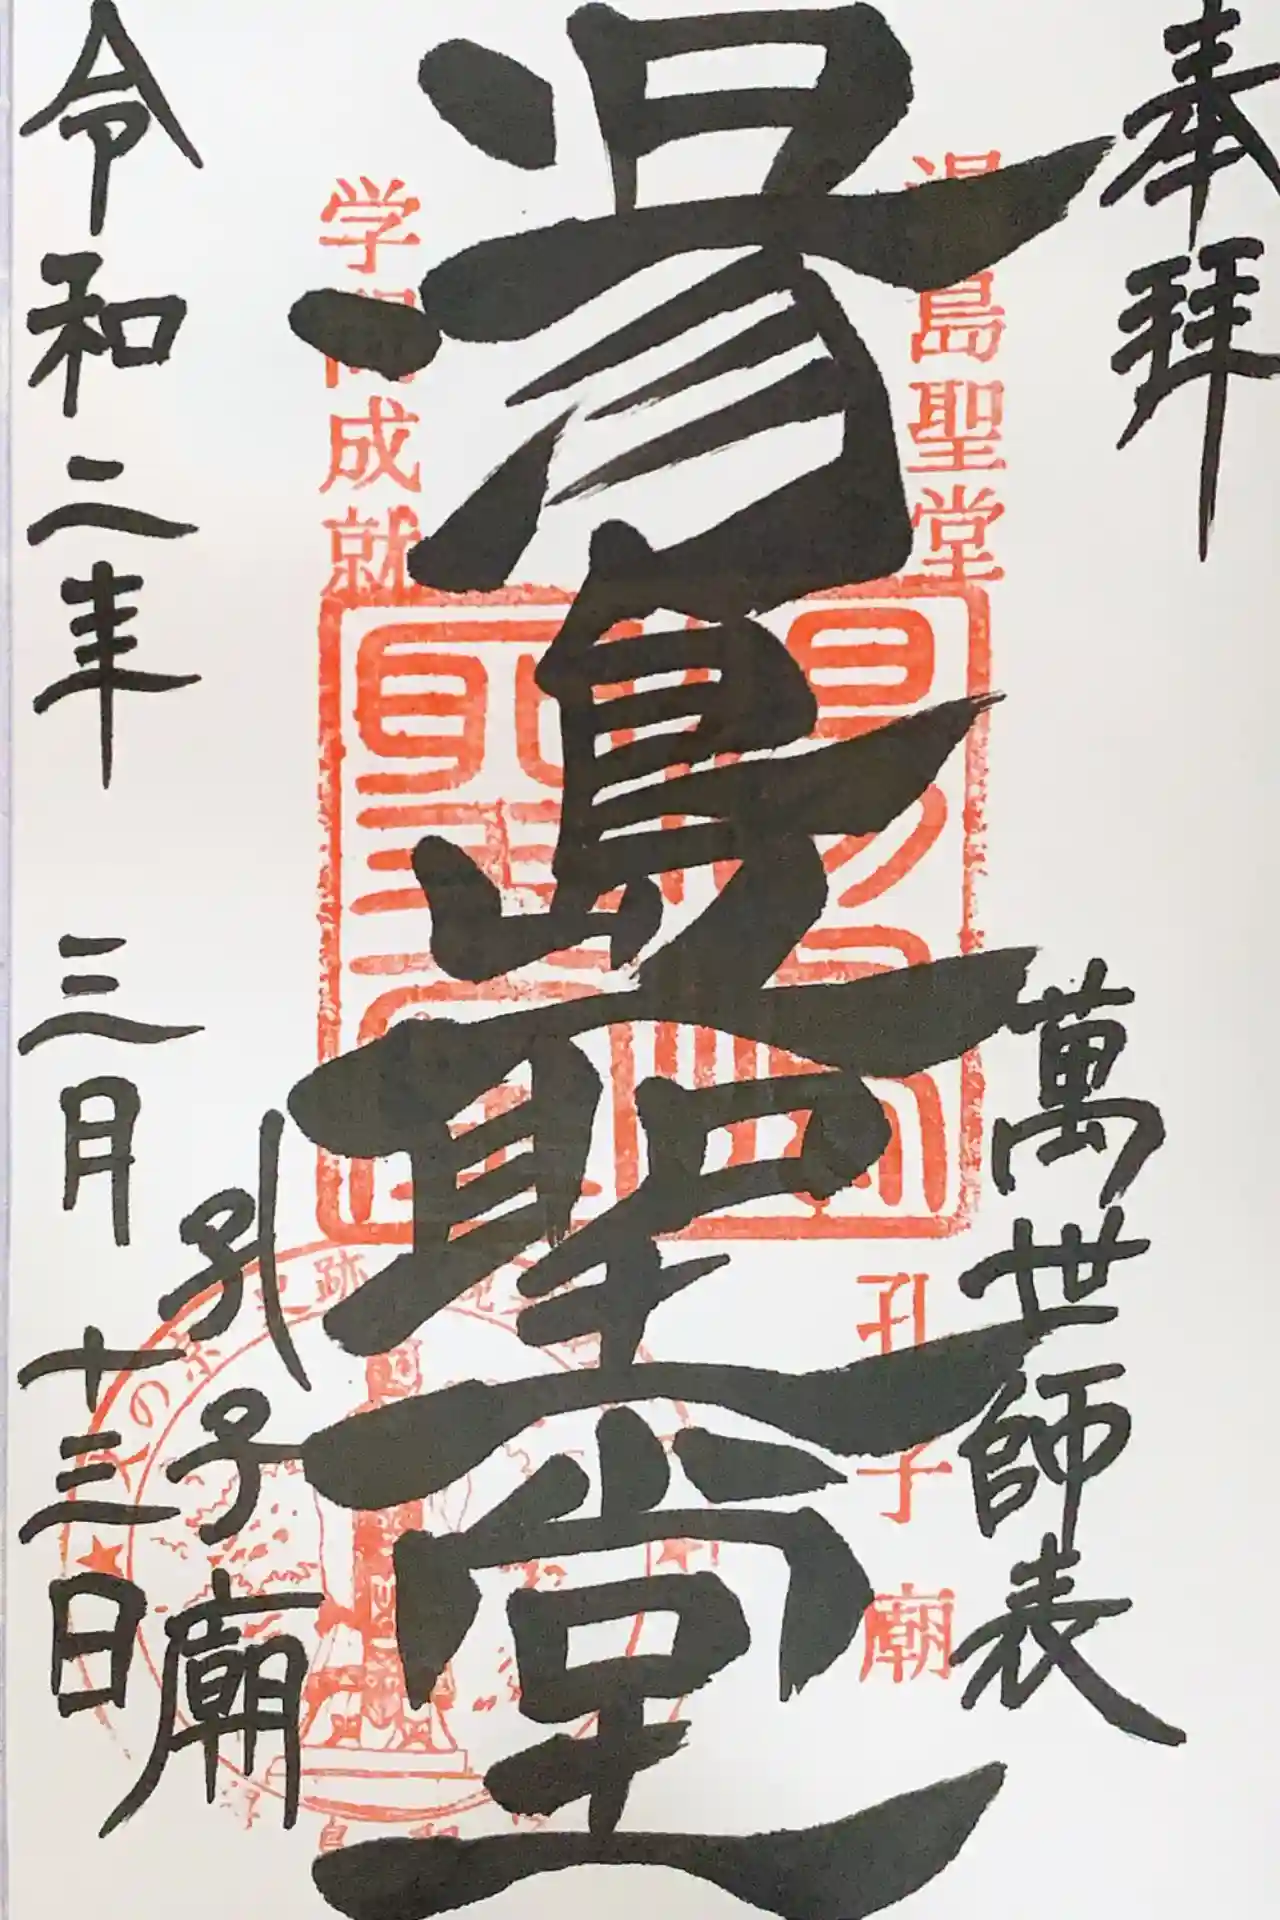 奉拝
萬世師表
湯島聖堂
孔子廟
湯島聖堂
学問成就
孔子廟
令和二年 三月十三日
史跡